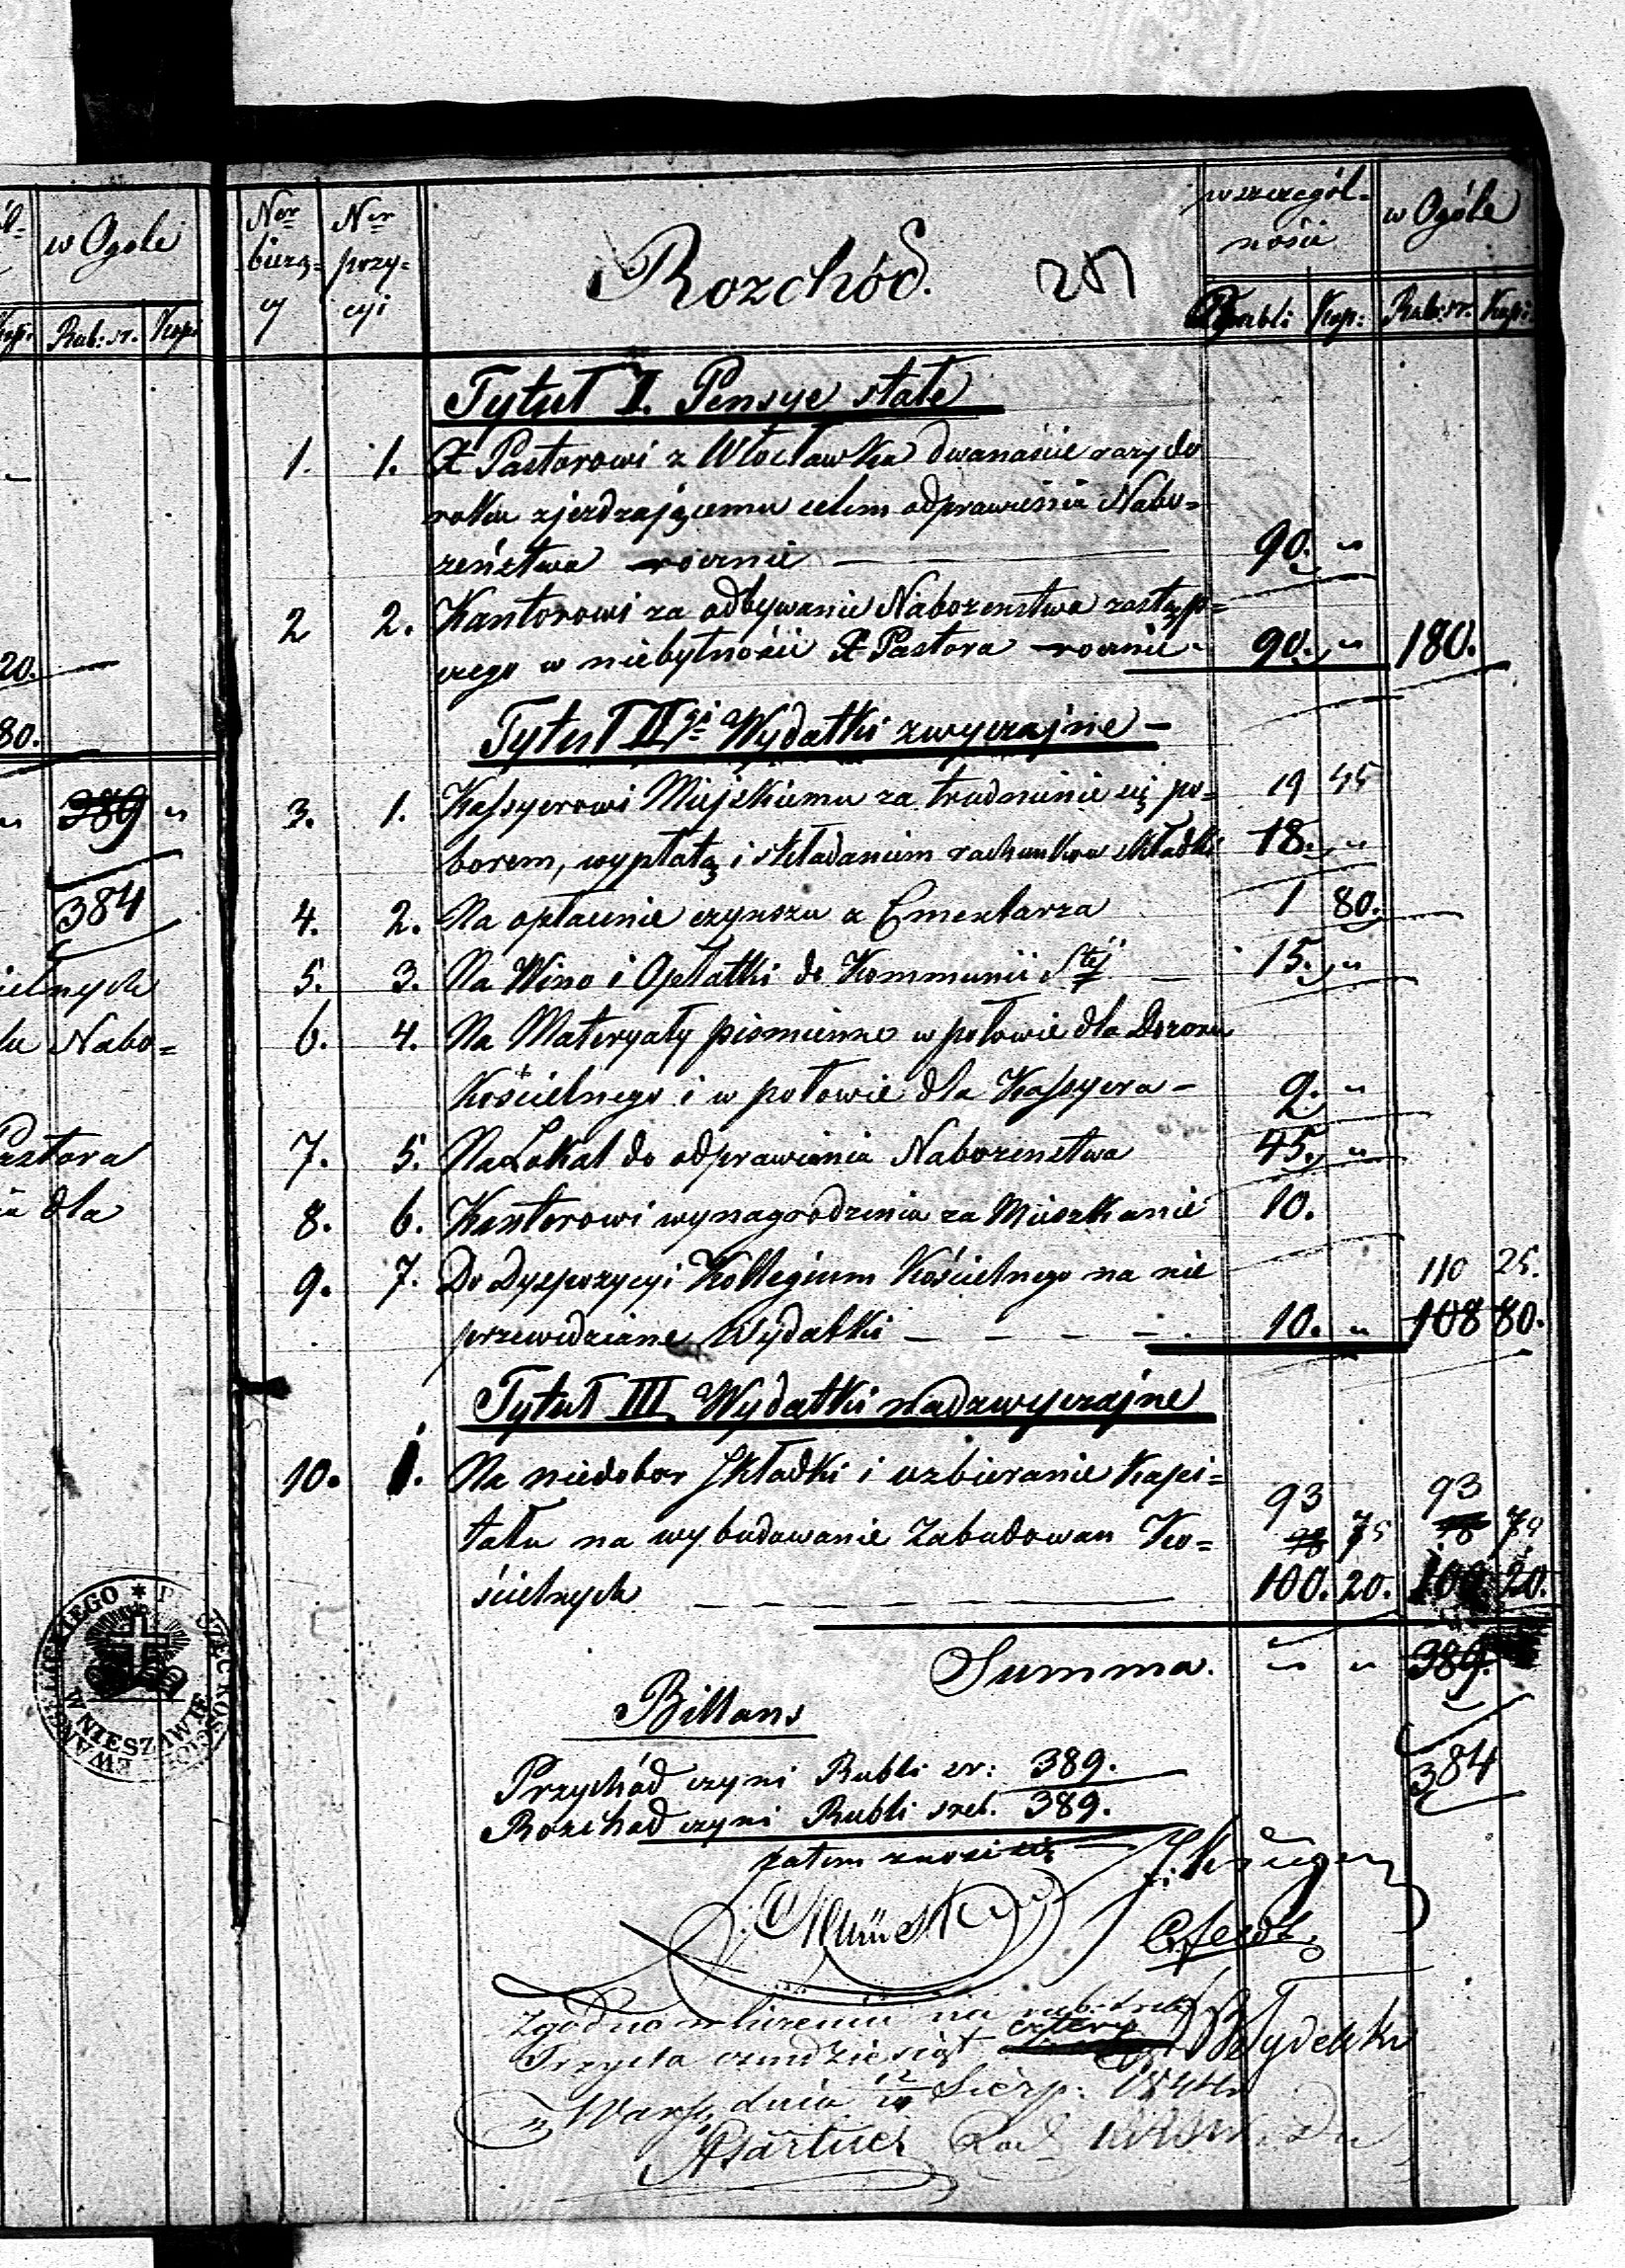 w Ogole
Rub: sr. Kopi
20.
80.
" 389 "
384
Nabo=
Pastora
dla
Ner bieżą=cy
Ner pozy=cyi
Rozchód.
w szczegól=
ności
w Ogóle
Rubli Kop: Rub: sr. Kopi
Tytuł I. Pensye stałe
1. 1. X Pastorowi z Włocławka dwanaście razy do
roku zjezdzającemu celem odprawienia Nabo=
zeństwa rocznie — 90. "
2 2. Kantorowi za odbywanie Nabozenstwa zastęp=
czego w niebytności X Pastora rocznie 90. " 180.
Tytuł II gi Wydatki zwyczajne —
3. 1. Kassyerowi Miejskiemu za trudnienie się po= 19 45
borem, wypłatą i składaniem rachunku składki 18. "
4. 2. Na opłacenie czynszu z Cmentarza 1 80.
5. 3. Na Wino i Opłatki do Kommunii Stej — 15. "
6. 4. Na Materyały piśmienne w połowie dla Dozoru
Kościelnego i w połowie dla Kassyera — 9. "
7. 5. Na Lokal do odprawiania Nabozenstwa 45. "
8. 6. Kantorowi wynagrodzenia za Mieszkanie 10.
9. 7. Do Dyspozycyi Kollegium Kościelnego na nie 110 25.
przewidziane Wydatki — — — — 10. " 108 80.
Tytuł III Wydatki nadzwyczajne
10. 1. Na niedobor Składki i uzbieranie Kapi=
93 93
tału na wybudowanie Zabudowan Ko= 98 75 98 75
ścielnych — — — — — — — 100. 20. 100. 20.
Summa. " " 389.
Billans
384
Przychód czyni Rubli sr: 389.
Rozchod czyni Rubli sreb. 389.
zatem znosi się
J. Krüger
Zgodno w liczeniu na rub: sreb
Trzysta osmdziesiąt cztery
w Warsz. dnia 12 Sierp: 1844
EWANGELICKIEGO
W NIESZAWIE